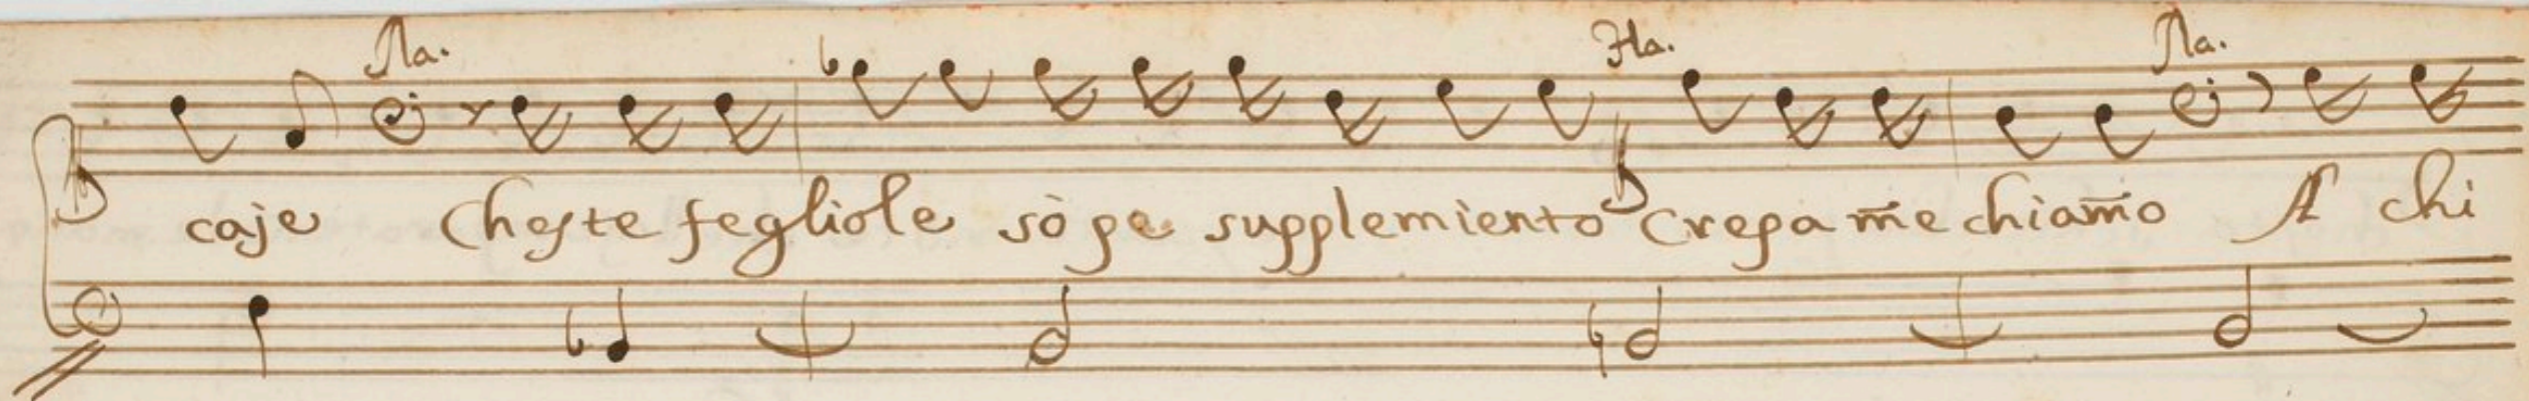 Na. Ha. Na.
caje Cheste fegliole sò pe supplemiento crepa m̃e chiam̃o A chi